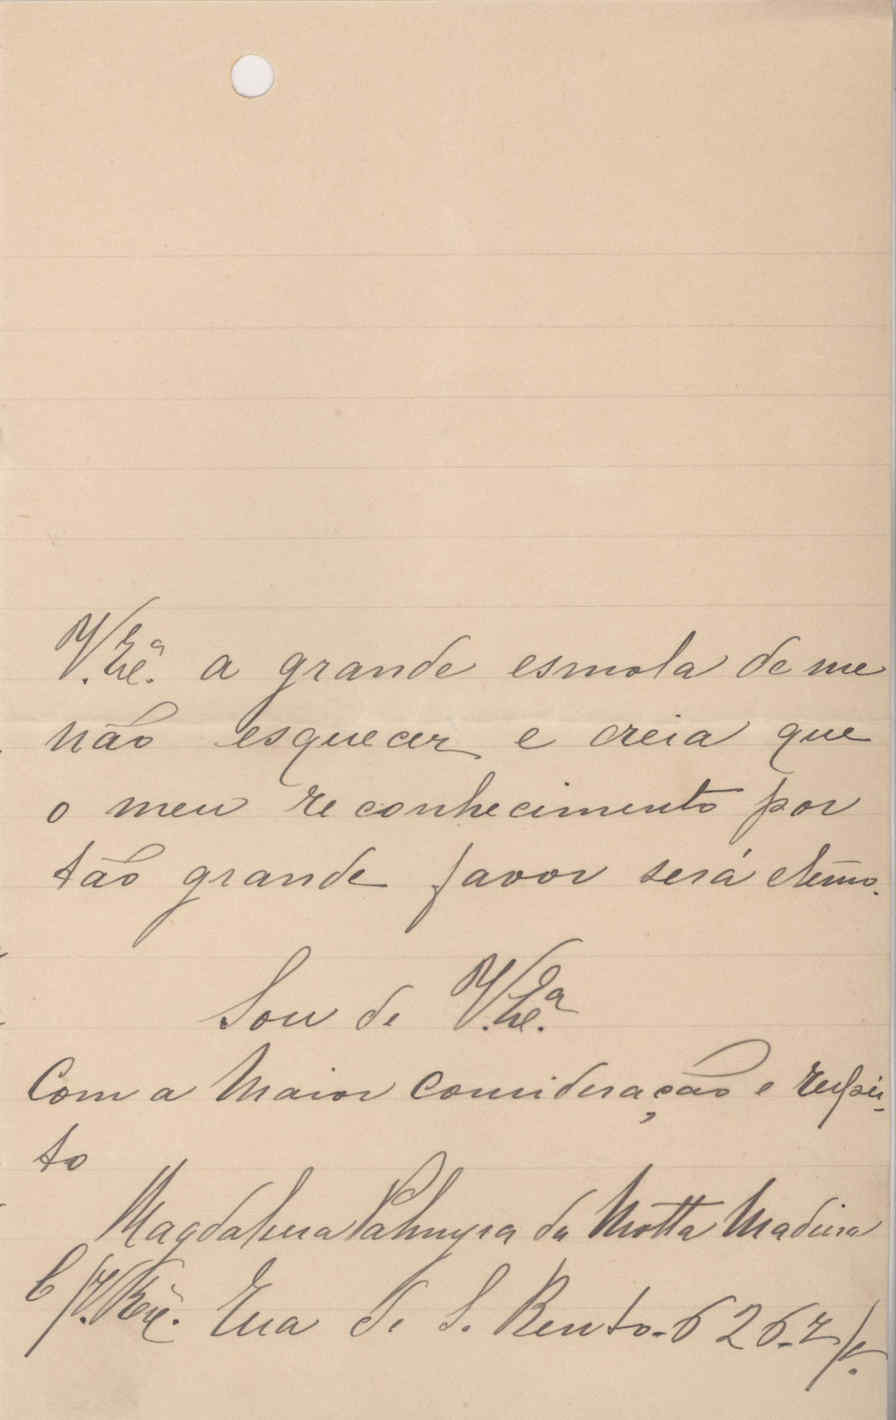 V. Exª. a grande esmola de me
não esquecer e creia que
o meu reconhecimento por
tão grande favor será eterno.
Sou de V. Exª.
Com a Maior consideração e respei-
to
Magdalena Palmyra da Motta Madeira
Rua de S. Bento - 626 - 2